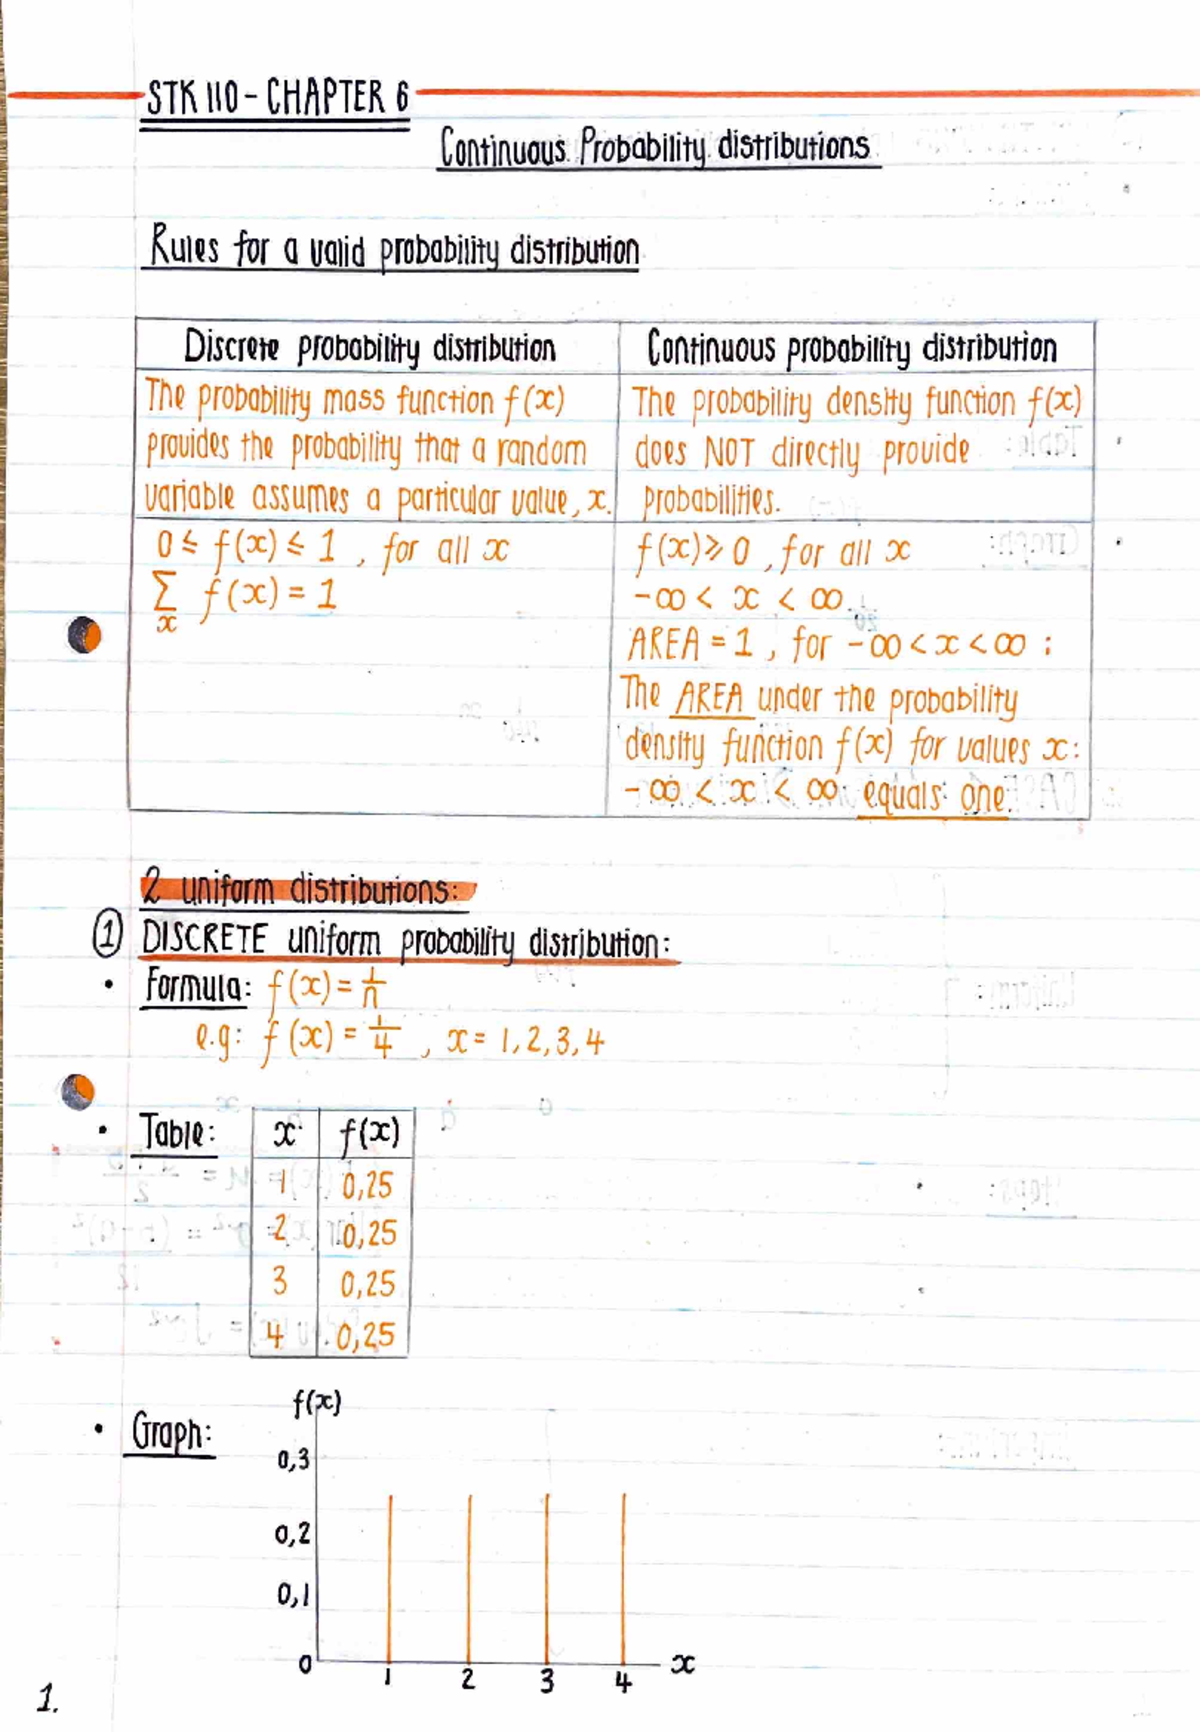 STK 110 - CHAPTER 6
Continuous Probability distributions
Rules for a valid probability distribution
Discrete probability distribution
The probability mass function f(x)
provides the probability that a random
variable assumes a particular value, x.
0 ≤ f(x) ≤ 1 , for all x
∑ f(x) = 1
x
Continuous probability distribution
The probability density function f(x)
does NOT directly provide
probabilities.
f(x) ≥ 0 , for all x
-∞ < x < ∞
AREA = 1 , for -∞ < x < ∞ :
The AREA under the probability
density function f(x) for values x:
-∞ < x < ∞ equals one.
2 uniform distributions:
① DISCRETE uniform probability distribution:
• Formula: f(x) = 1/n
e.g: f(x) = 1/4 , x = 1, 2, 3, 4
• Table: x f(x)
1 0,25
2 0,25
3 0,25
4 0,25
• Graph: f(x)
0,3
0,2
0,1
0 x
1 2 3 4
1.